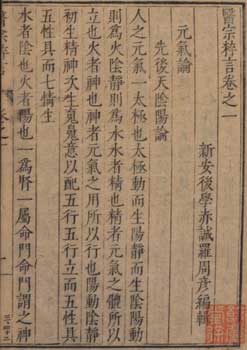 醫宗粹言卷之一
新安後學赤誠羅周彥編輯
元氣論
先後天陰陽論
人之元氣一太極也太極動而生陽靜而生陰動
則為火陰靜則為水水者精也精者元氣之體所以
立也火者神也神者元氣之用所以行也陽動陰靜
初生精神次生䰟魄意以配五行五行立而五性具
五性具而七情生
水者陰也火者陽也一為腎一屬命門命門謂之神